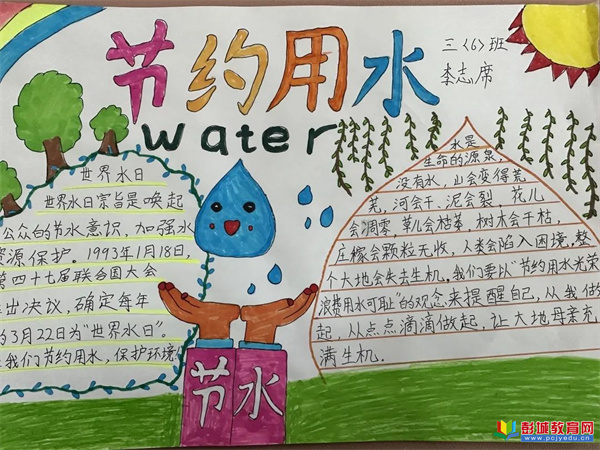 节约用水
三〈6〉班
李志席
water
世界水日
世界水日宗旨是唤起
公众的节水意识，加强水
资源保护。1993年1月18日，
第四十七届联合国大会
出决议，确定每年
的3月22日为“世界水日”。
我们节约用水，保护环境
水是
生命的源泉，
没有水，山会变得荒
芜，河会干，泥会裂，花儿
会凋零，草儿会枯萎，树木会干枯，
庄稼会颗粒无收，人类会陷入困境，整
个大地会失去生机。我们要以“节约用水光荣
浪费用水可耻”的观念来提醒自己，从我做
起，从点点滴滴做起，让大地母亲充
满生机。
节水
彭城教育网
www.pcjyedu.cn